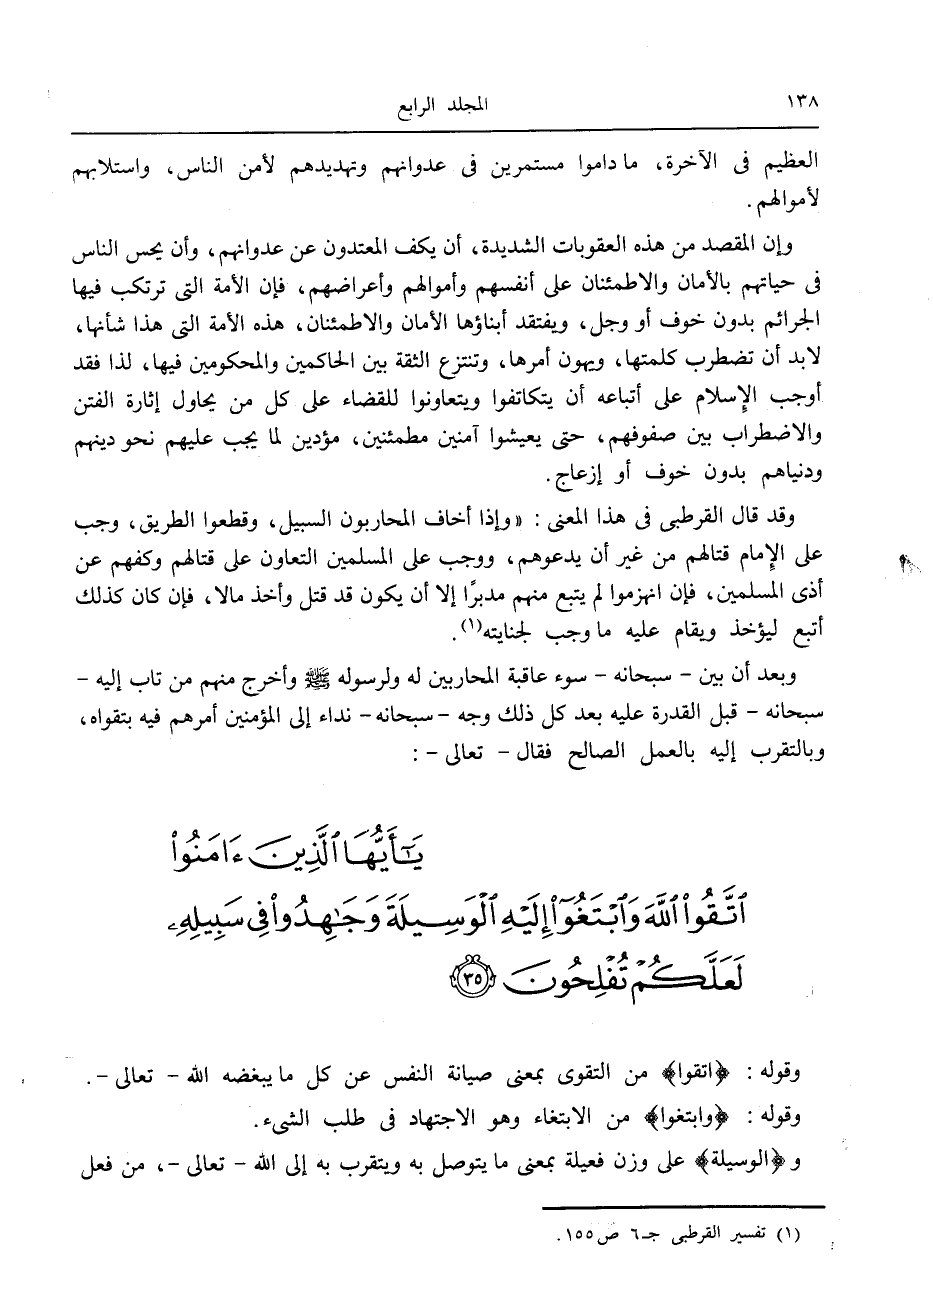 ١٣٨
المجلد الرابع
العظيم فى الآخرة، ما داموا مستمرين فى عدوانهم وتهديدهم لأمن الناس، واستلابهم
لأموالهم.
وإن المقصد من هذه العقوبات الشديدة، أن يكف المعتدون عن عدوانهم، وأن يحس الناس
فى حياتهم بالأمان والاطمئنان على أنفسهم وأموالهم وأعراضهم، فإن الأمة التى ترتكب فيها
الجرائم بدون خوف أو وجل، ويفتقد أبناؤها الأمان والاطمئنان، هذه الأمة التى هذا شأنها،
لابد أن تضطرب كلمتها، ويهون أمرها، وتنتزع الثقة بين الحاكمين والمحكومين فيها، لذا فقد
أوجب الإسلام على أتباعه أن يتكاتفوا ويتعاونوا للقضاء على كل من يحاول إثارة الفتن
والاضطراب بين صفوفهم، حتى يعيشوا آمنين مطمئنين، مؤدين لما يجب عليهم نحو دينهم
ودنياهم بدون خوف أو إزعاج.
وقد قال القرطبى فى هذا المعنى : «وإذا أخاف المحاربون السبيل، وقطعوا الطريق، وجب
على الإمام قتالهم من غير أن يدعوهم، ووجب على المسلمين التعاون على قتالهم وكفهم عن
أذى المسلمين، فإن انهزموا لم يتبع منهم مدبرًا إلا أن يكون قد قتل وأخذ مالا، فإن كان كذلك
أتبع ليؤخذ ويقام عليه ما وجب لجنايته(١).
وبعد أن بين - سبحانه - سوء عاقبة المحاربين له ولرسوله ﷺ وأخرج منهم من تاب إليه -
سبحانه - قبل القدرة عليه بعد كل ذلك وجه - سبحانه - نداء إلى المؤمنين أمرهم فيه بتقواه،
وبالتقرب إليه بالعمل الصالح فقال - تعالى - :
يَـٰٓأَيُّهَا ٱلَّذِينَ ءَامَنُوا۟
ٱتَّقُوا۟ ٱللَّهَ وَٱبْتَغُوٓا۟ إِلَيْهِ ٱلْوَسِيلَةَ وَجَـٰهِدُوا۟ فِى سَبِيلِهِۦ
لَعَلَّكُمْ تُفْلِحُونَ ٣٥
وقوله : ﴿اتقوا﴾ من التقوى بمعنى صيانة النفس عن كل ما يبغضه الله - تعالى -.
وقوله : ﴿وابتغوا﴾ من الابتغاء وهو الاجتهاد فى طلب الشىء.
و ﴿الوسيلة﴾ على وزن فعيلة بمعنى ما يتوصل به ويتقرب به إلى الله - تعالى -، من فعل
(١) تفسير القرطبى جـ٦ ص١٥٥.